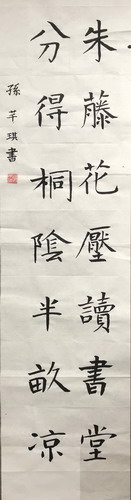 朱藤花壓讀書堂
分得桐陰半畝凉
孫芊琪書